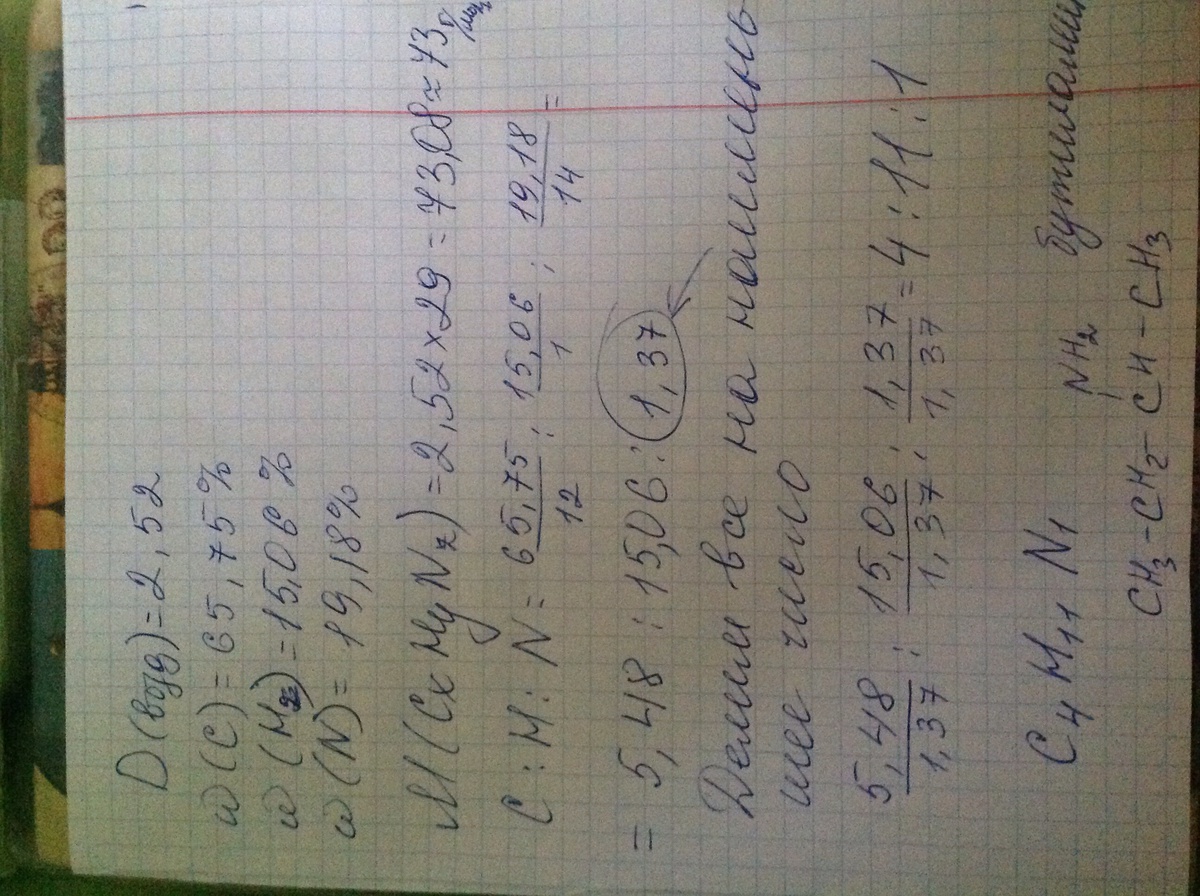 D(возд) = 2,52
ω(C) = 65,75%
ω(H₂) = 15,06%
ω(N) = 19,18%
M(CxHyNz) = 2,52×29 = 73,08 ≈ 73 г/моль
C : H : N = 65,75/12 : 15,06/1 : 19,18/14 =
= 5,48 : 15,06 : 1,37
Делим все на наимень
шее число
5,48/1,37 : 15,06/1,37 : 1,37/1,37 = 4 : 11 : 1
C₄H₁₁N₁ NH₂ бутиламин
CH₃-CH₂-CH-CH₃